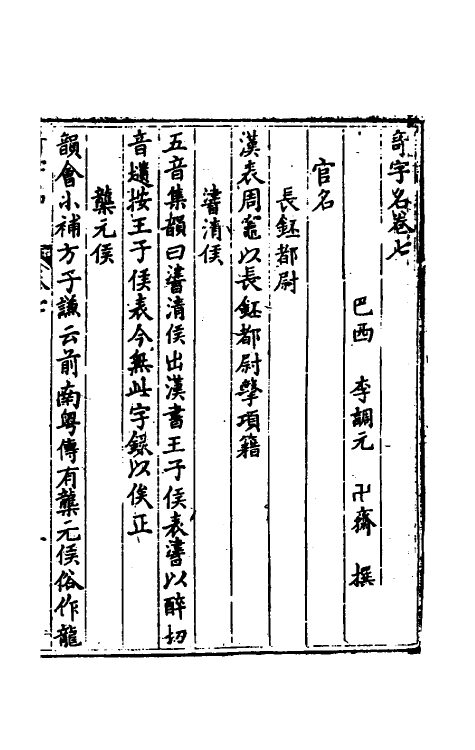 奇字名卷七
巴西 李調元 卍齋 撰
官名
長鉟都尉
漢表周竈以長鉟都尉擊項籍
𧄍清侯
五音集韻曰𧄍清侯出漢書王子侯表𧄍以醉切
音䜅按王子侯表今無此字錄以俟正
龒元侯
韻會小補方子謙云前南粵傳有龒元侯俗作龍